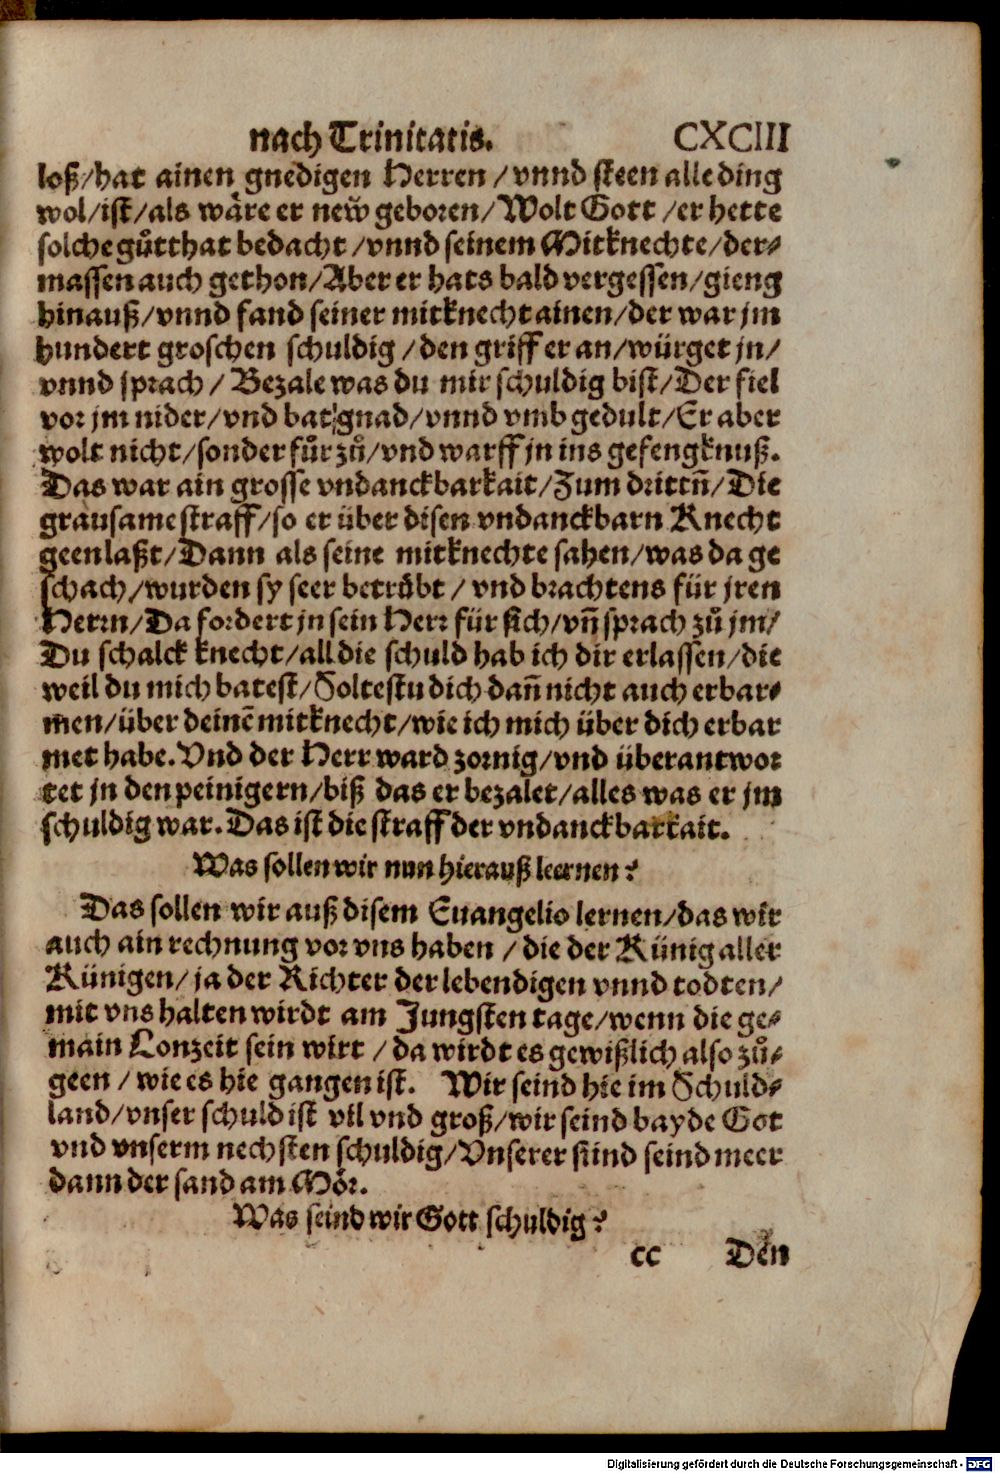 nach Trinitatis. CXCIII
loß/hat ainen gnedigen Herren/vnnd steen alle ding
wol/ist/als wäre er new̃ geboren/Wolt Gott/er hette
solche gůtthat bedacht/vnnd seinem Mitknechte/der⸗
massen auch gethon/Aber er hats bald vergessen/gieng
hinauß/vnnd fand seiner mitknecht ainen/der war jm
hundert groschen schuldig/den griff er an/würget jn/
vnnd sprach/Bezale was du mir schuldig bist/Der fiel
vor jm nider/vnd bat gnad/vnnd vmb gedult/Er aber
wolt nicht/sonder fůr zů/vnd warff jn ins gefengknuß.
Das war ain grosse vndanckbarkait/Zum drittn̄/Die
grausame straff/so er über disen vndanckbarn Knecht
geen laßt/Dann als seine mitknechte sahen/was da ge
schach/wurden sy seer betrůbt/vnd brachtens für jren
Herrn/Da fordert jn sein Herr für sich/vn̄ sprach zů jm/
Du schalck knecht/all die schuld hab ich dir erlassen/die
weil du mich batest/Soltestu dich dan̄ nicht auch erbar⸗
men/über deinē mitknecht/wie ich mich über dich erbar
met habe. Vnd der Herr ward zornig/vnd überantwor
tet jn den peinigern/biß das er bezalet/alles was er jm
schuldig war. Das ist die straff der vndanckbarkait.
Was sollen wir nun hierauß leernen?
Das sollen wir auß disem Euangelio lernen/das wir
auch ain rechnung vor vns haben/die der Künig aller
Künigen/ja der Richter der lebendigen vnnd todten/
mit vns halten wirdt am Jungsten tage/wenn die ge⸗
main Lonzeit sein wirt/da wirdt es gewißlich also zů⸗
geen/wie es hie gangen ist. Wir seind hie im Schuld⸗
land/vnser schuld ist vil vnd groß/wir seind bayde Got
vnd vnserm nechsten schuldig/Vnserer sünd seind meer
dann der sand am Mör.
Was seind wir Gott schuldig?
cc Den
Digitalisierung gefördert durch die Deutsche Forschungsgemeinschaft - DFG